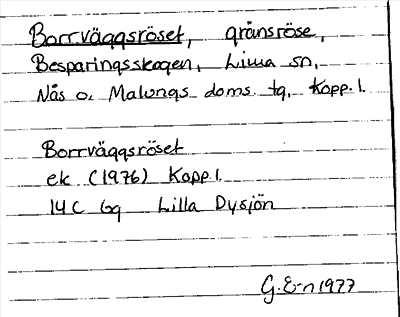 Borrväggsröset, gränsröse,
Besparingsskogen, Lima sn,
Nås o. Malungs doms. tg, Kopp. l.
Borrväggsröset
ek (1976) Kopp l.
14 C 6g Lilla Dysjön
G. E-n 1977